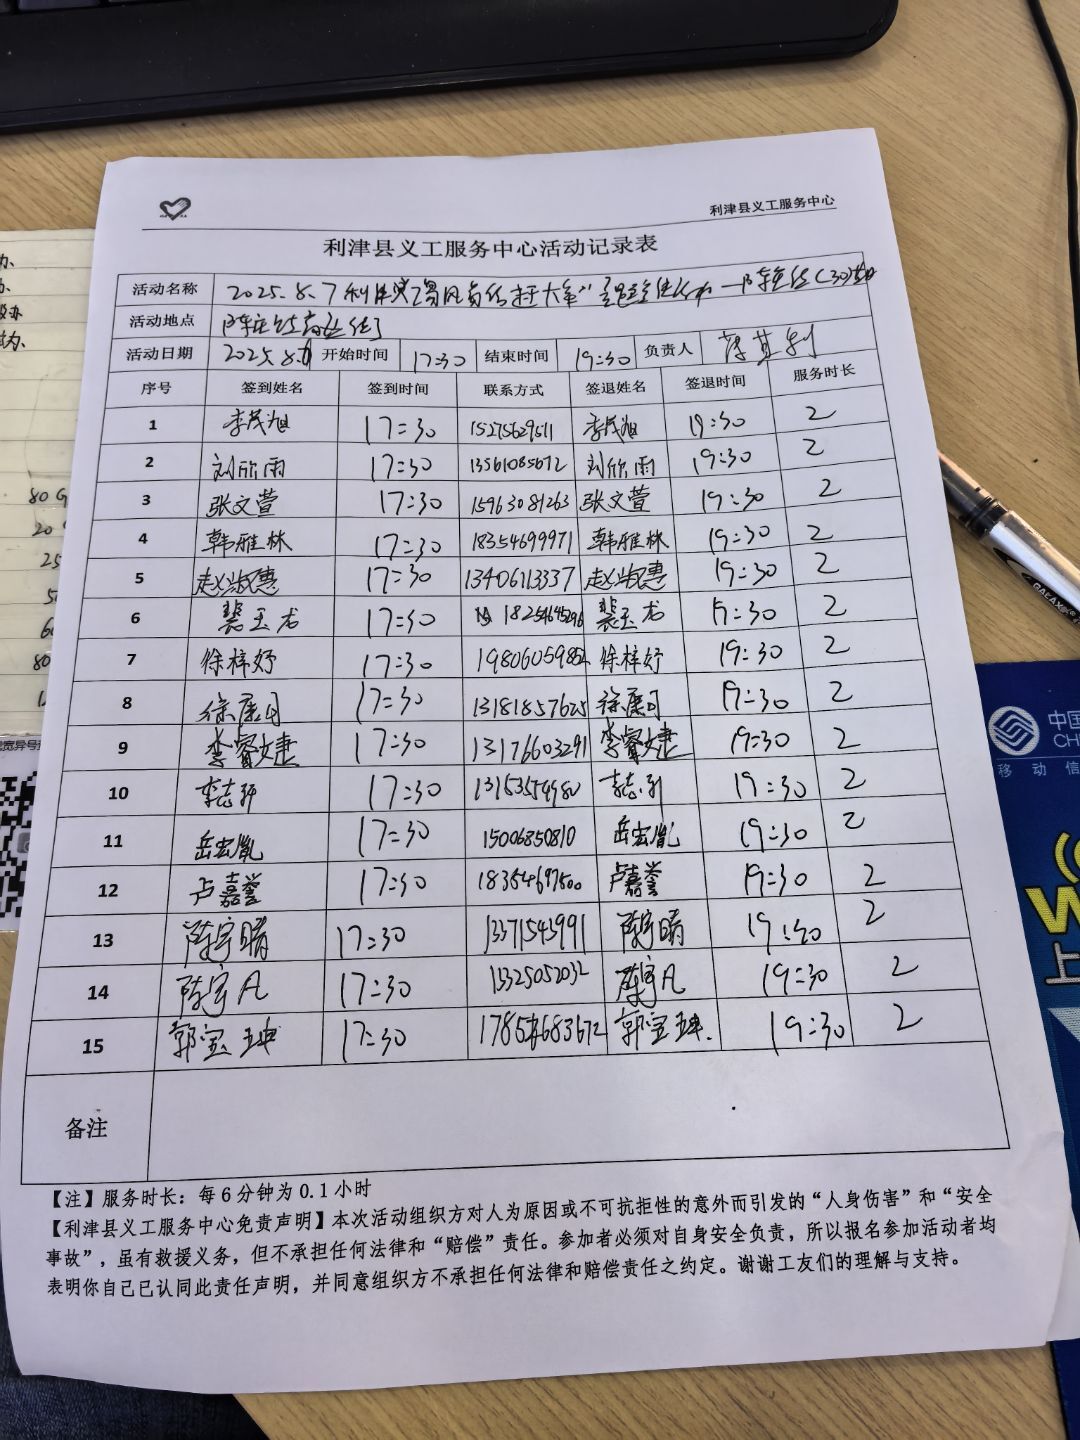 利津县义工服务中心
利津县义工服务中心活动记录表
活动名称 2025.8.7利津
活动地点
活动日期 2025.8.7 开始时间 17:30 结束时间 19:30 负责人
序号 签到姓名 签到时间 联系方式 签退姓名 签退时间 服务时长
1 李茂旭 17:30 15275629511 李茂旭 19:30 2
2 刘欣雨 17:30 13561085672 刘欣雨 19:30 2
3 张文萱 17:30 15963081263 张文萱 19:30 2
4 韩雅林 17:30 18354699971 韩雅林 19:30 2
5 赵淑惠 17:30 13406113337 赵淑惠 19:30 2
6 裴玉龙 17:30 18254645296 裴玉龙 19:30 2
7 徐梓妤 17:30 19806059852 徐梓妤 19:30 2
8 17:30 13181857625 19:30 2
9 李睿婕 17:30 13176603291 李睿婕 19:30 2
10 17:30 19:30 2
11 岳宏胤 17:30 15006850810 岳宏胤 19:30 2
12 卢嘉誉 17:30 卢嘉誉 19:30 2
13 陈宇晴 17:30 13371543991 陈宇晴 2
14 陈宇凡 17:30 陈宇凡 19:30 2
15 郭宝珅 17:30 郭宝珅. 19:30 2
备注
【注】服务时长：每6分钟为0.1小时
【利津县义工服务中心免责声明】本次活动组织方对人为原因或不可抗拒性的意外而引发的“人身伤害”和“安全
事故”，虽有救援义务，但不承担任何法律和“赔偿”责任。参加者必须对自身安全负责，所以报名参加活动者均
表明你自己已认同此责任声明，并同意组织方不承担任何法律和赔偿责任之约定。谢谢工友们的理解与支持。
80
20
25
80
GALAX
中国
CH
移动信
W
上